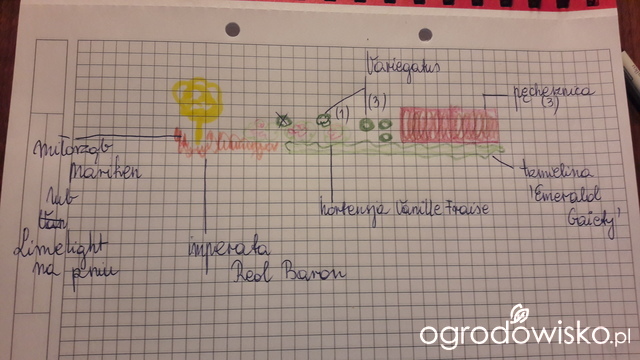 Variegatus
(1)
(3)
pęcherznica
(3)
miłorząb
Mariken
lub
Limelight
na pniu
imperata
Red Baron
hortensja Vanille Fraise
trzmielina
'Emerald
Gaiety'
ogrodowisko.pl